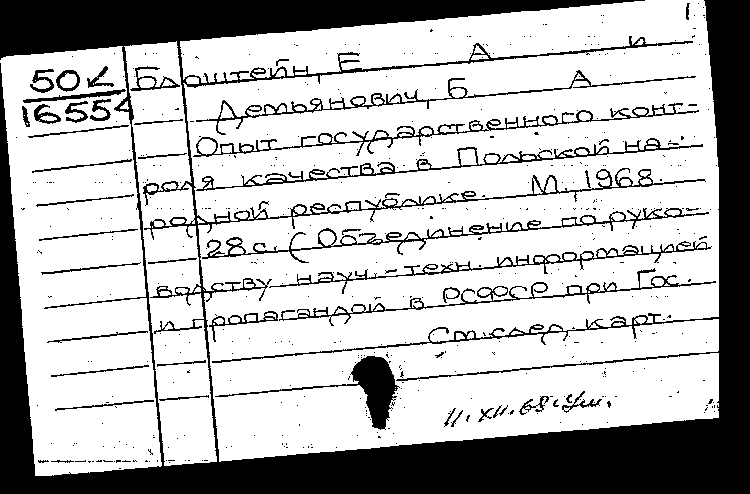 1
50 К
16554
Блюштейн, Е А и
Демьянович, Б. А
Опыт государственного конт-
роля качества в Польской на-
родной республике. М., 1968.
28 с. (Объединение по руко-
водству науч.-техн. информацией
и пропагандой в РСФСР при Гос.
См. след. карт.
11.XII.68.